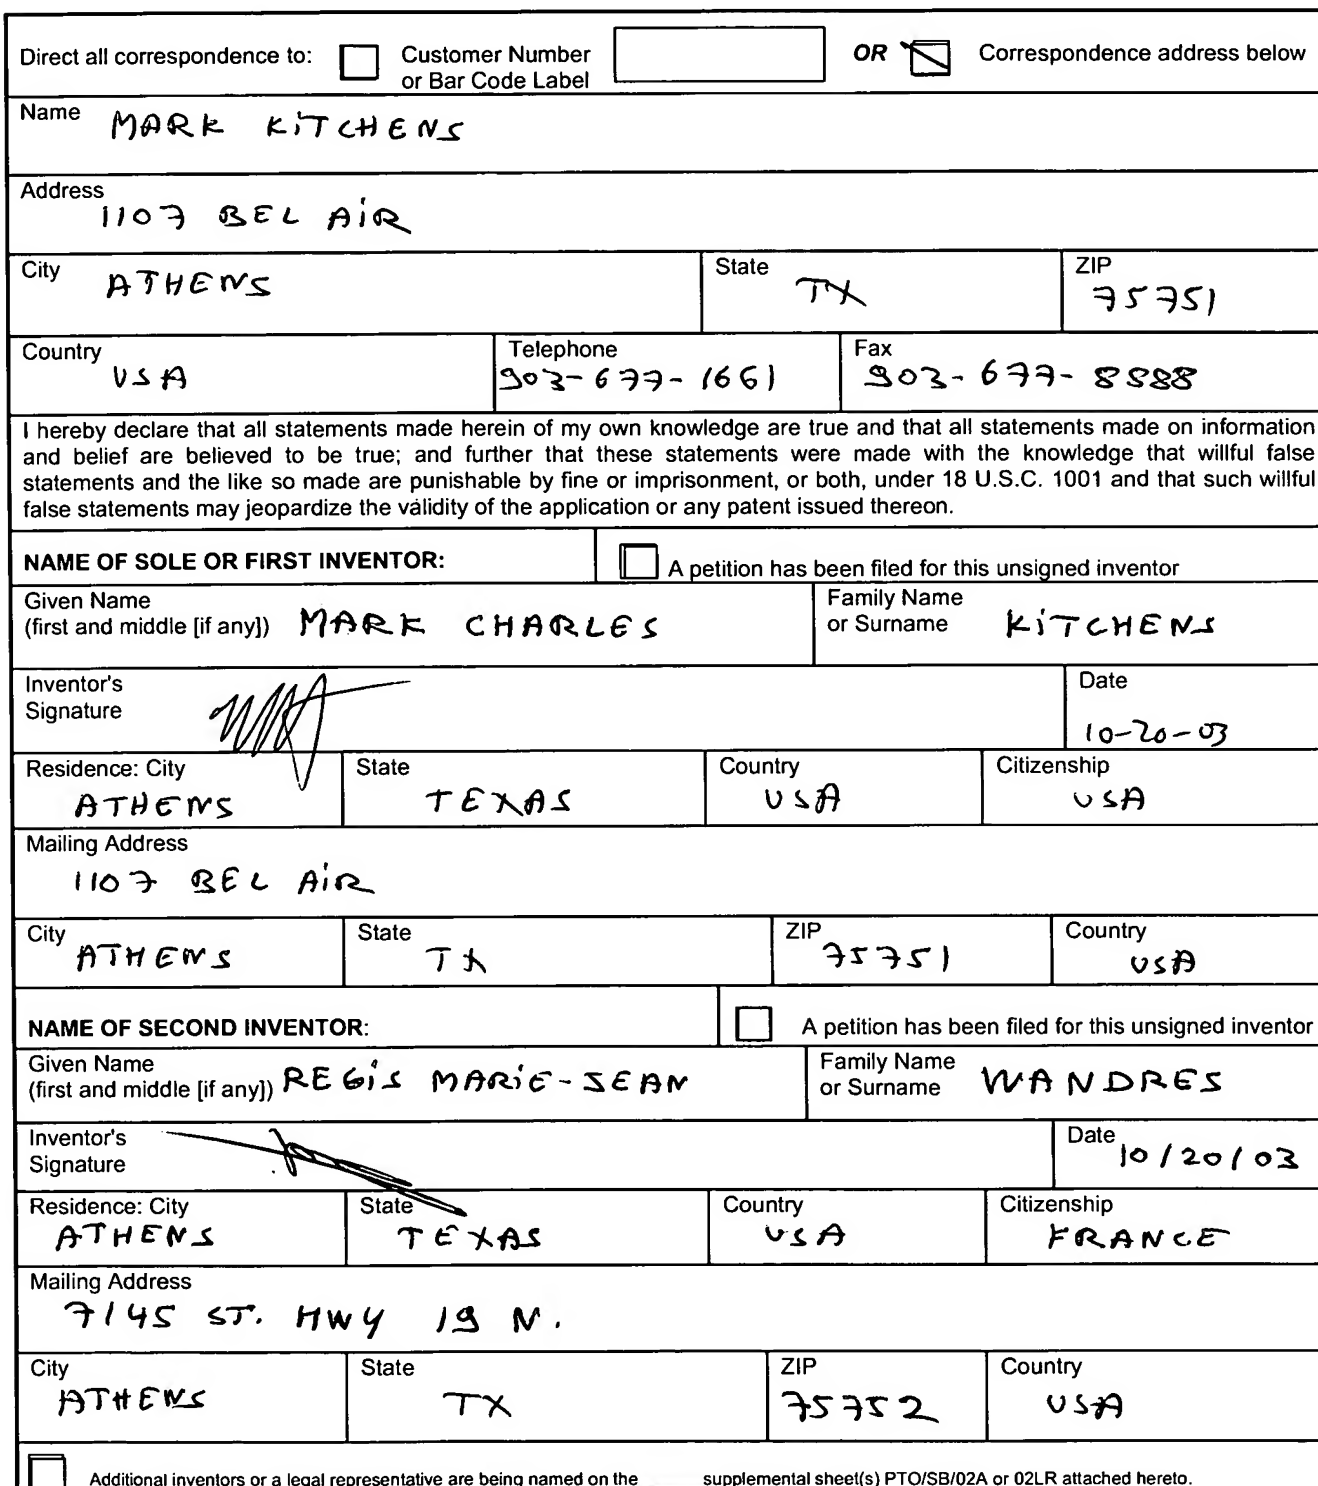 Direct all correspondence to: Customer Number or Bar Code Label OR Correspondence address below
Name MARK KITCHENS
Address
1107 BEL AIR
City ATHENS State TX ZIP 75751
Country USA Telephone 903-677-1661 Fax 903-677-8588
I hereby declare that all statements made herein of my own knowledge are true and that all statements made on information
and belief are believed to be true; and further that these statements were made with the knowledge that willful false
statements and the like so made are punishable by fine or imprisonment, or both, under 18 U.S.C. 1001 and that such willful
false statements may jeopardize the validity of the application or any patent issued thereon.
NAME OF SOLE OR FIRST INVENTOR: A petition has been filed for this unsigned inventor
Given Name
(first and middle [if any]) MARK CHARLES Family Name
or Surname KITCHENS
Inventor's
Signature Date
10-20-03
Residence: City State Country Citizenship
ATHENS TEXAS USA USA
Mailing Address
1107 BEL AIR
City ATHENS State TX ZIP 75751 Country USA
NAME OF SECOND INVENTOR: A petition has been filed for this unsigned inventor
Given Name
(first and middle [if any]) REGIS MARIE-JEAN Family Name
or Surname WANDRES
Inventor's
Signature Date 10/20/03
Residence: City State Country Citizenship
ATHENS TEXAS USA FRANCE
Mailing Address
7145 ST. HWY 19 N.
City State ZIP Country
ATHENS TX 75752 USA
Additional inventors or a legal representative are being named on the supplemental sheet(s) PTO/SB/02A or 02LR attached hereto.